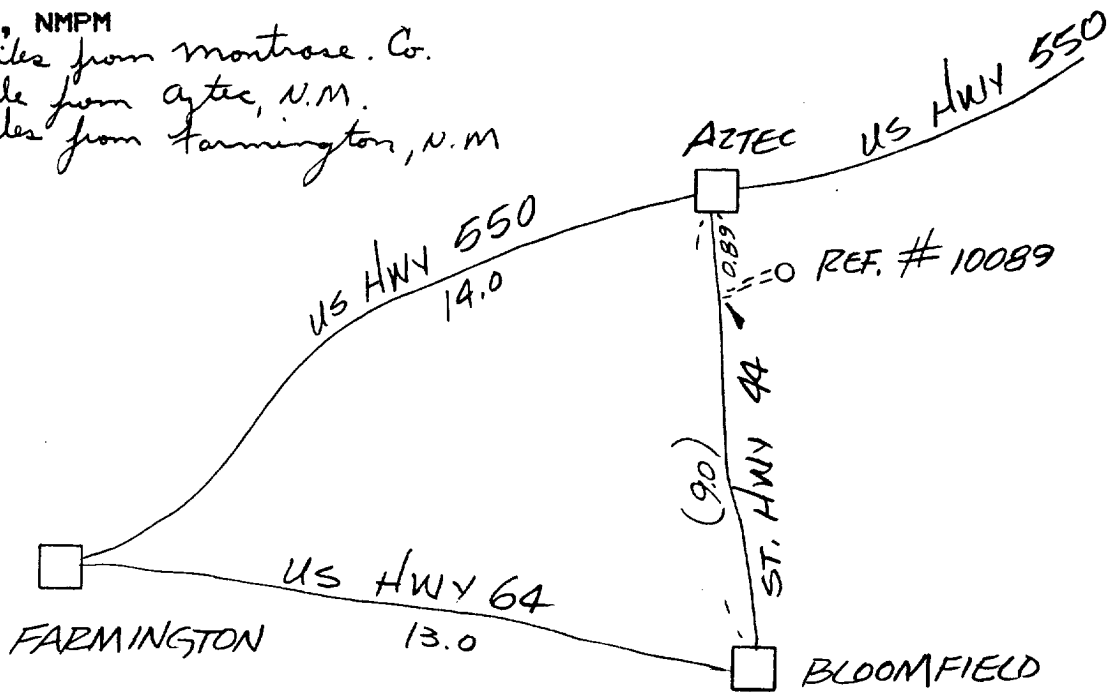 , NMPM
iles from Montrose. Co.
le from Aztec, N.M.
les from Farmington, N.M
US HWY 550
AZTEC
US HWY 550
14.0
0.89
REF. # 10089
ST. HWY 44
(9.0)
US HWY 64
13.0
FARMINGTON
BLOOMFIELD